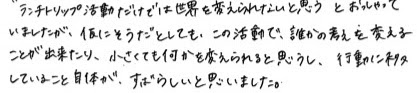 "ランチトリップ活動だけでは世界を変えられないと思う とおっしゃって
いましたが、仮にそうだとしても、この活動で、誰かの考えを変える
ことが出来たり、小さくても何かを変えられると思うし、行動に移
していること自体が、すばらしいと思いました。